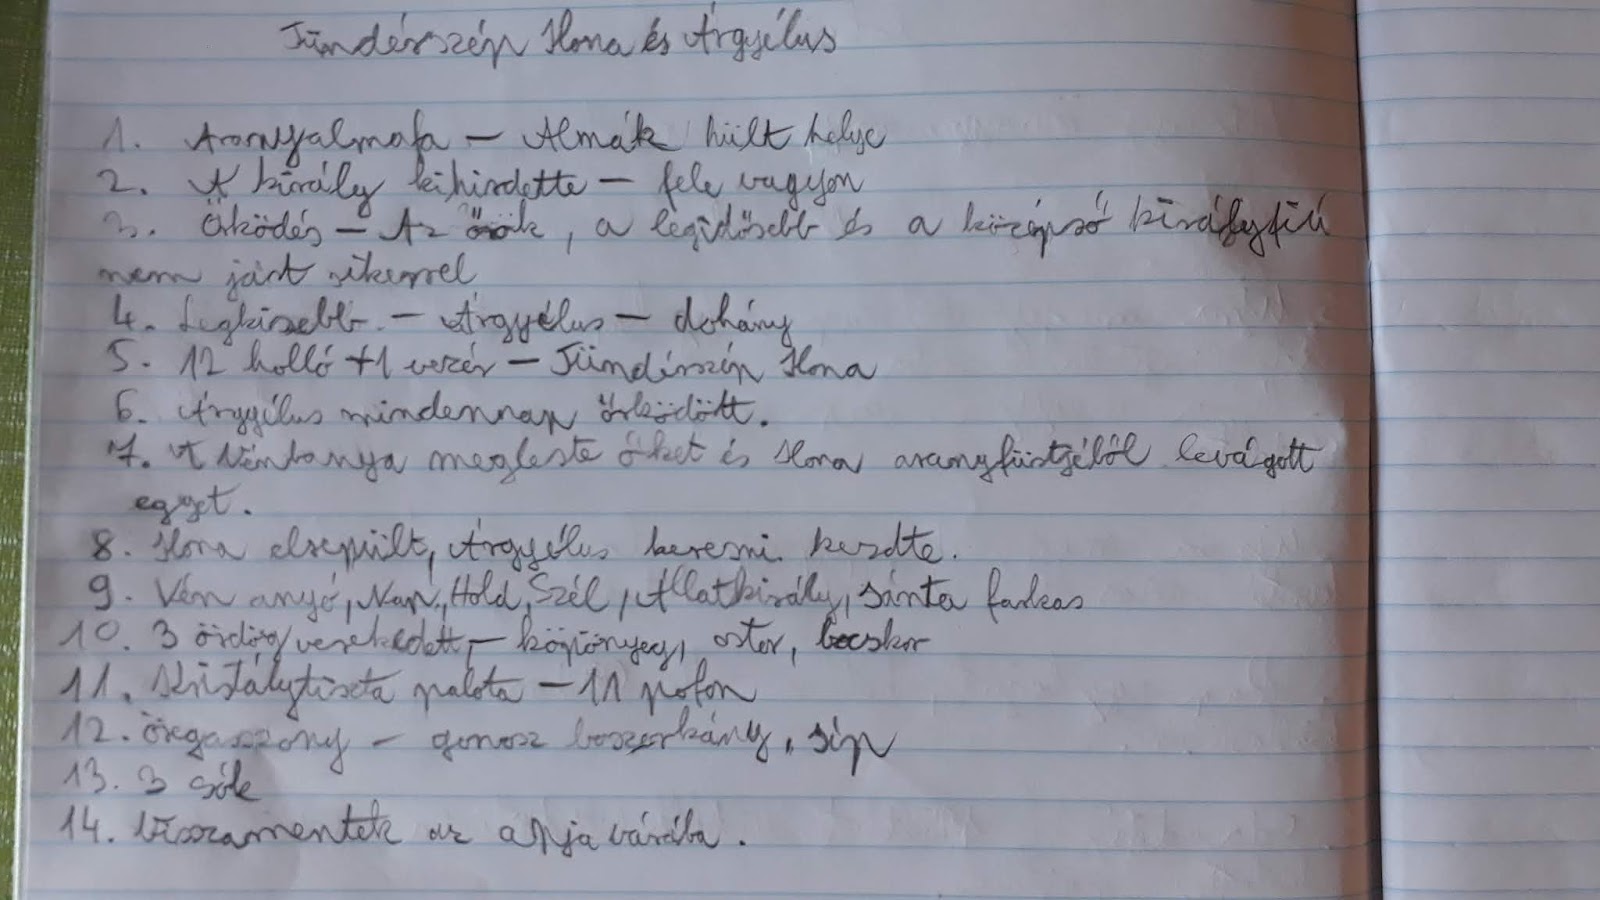 Tündérszép Ilona és Árgyélus
1. Aranyalmafa – Almák hűlt helye
2. A király kihirdette – fele vagyon
3. Őrködés – Az őrök, a legidősebb és a középső királyfiú
nem járt sikerrel
4. Legkisebb – Árgyélus – dohány
5. 12 holló +1 vezér – Tündérszép Ilona
6. Árgyélus mindennap őrködött.
7. A Vénbanya megleste őket és Ilona aranyfürtjéből levágott
egyet.
8. Ilona elrepült, Árgyélus keresni kezdte.
9. Vén anyó, Nap, Hold, Szél, Állatkirály, sánta farkas
10. 3 ördög verekedett – köpönyeg, ostor, bocskor
11. Kristálytiszta palota – 11 pofon
12. Öregasszony – gonosz boszorkány, síp
13. 3
14. Visszamentek az apja várába.